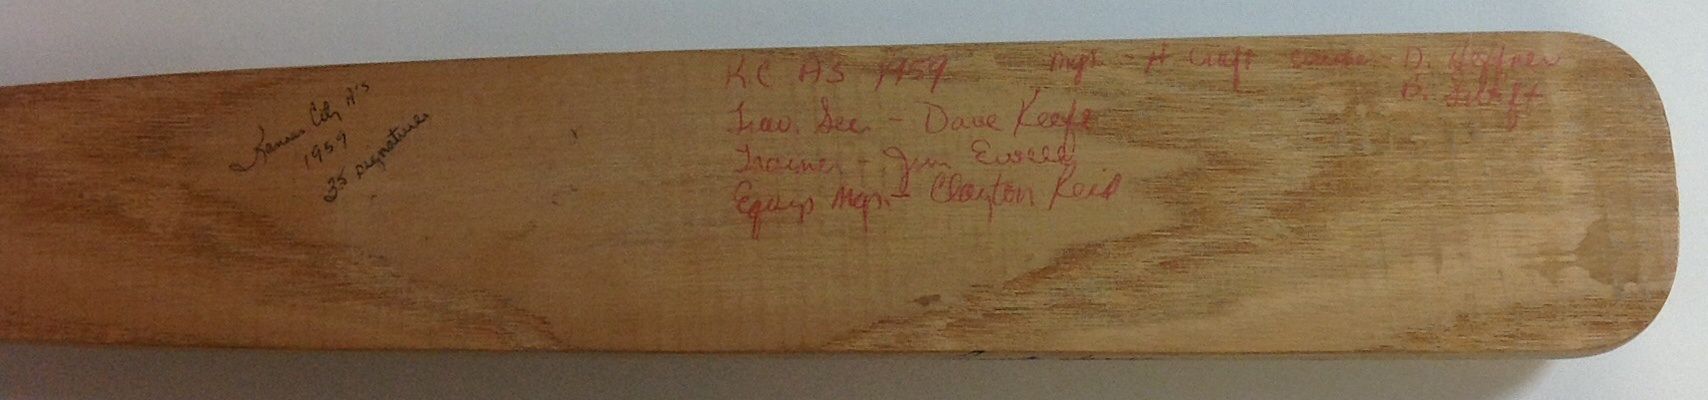 Kansas City A's
1959
35 signatures
KC AS 1959
Mgr. - H Craft
D. Heffner
Trav. Sec. - Dave Keefe
Trainer - Jim Ewell
Equip Mgr. - Clayton Reid